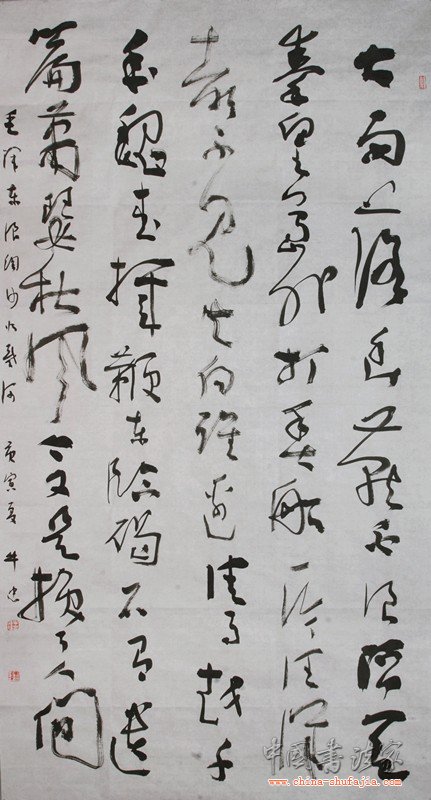 大雨落幽燕白浪滔天
秦皇島外打魚船一片汪洋
都不見知向誰邊往事越千
年魏武揮鞭東臨碣石有遺
篇蕭瑟秋風今又是換了人間
毛澤東浪淘沙北戴河 庚寅夏
中國書法家
www.china-shufajia.com